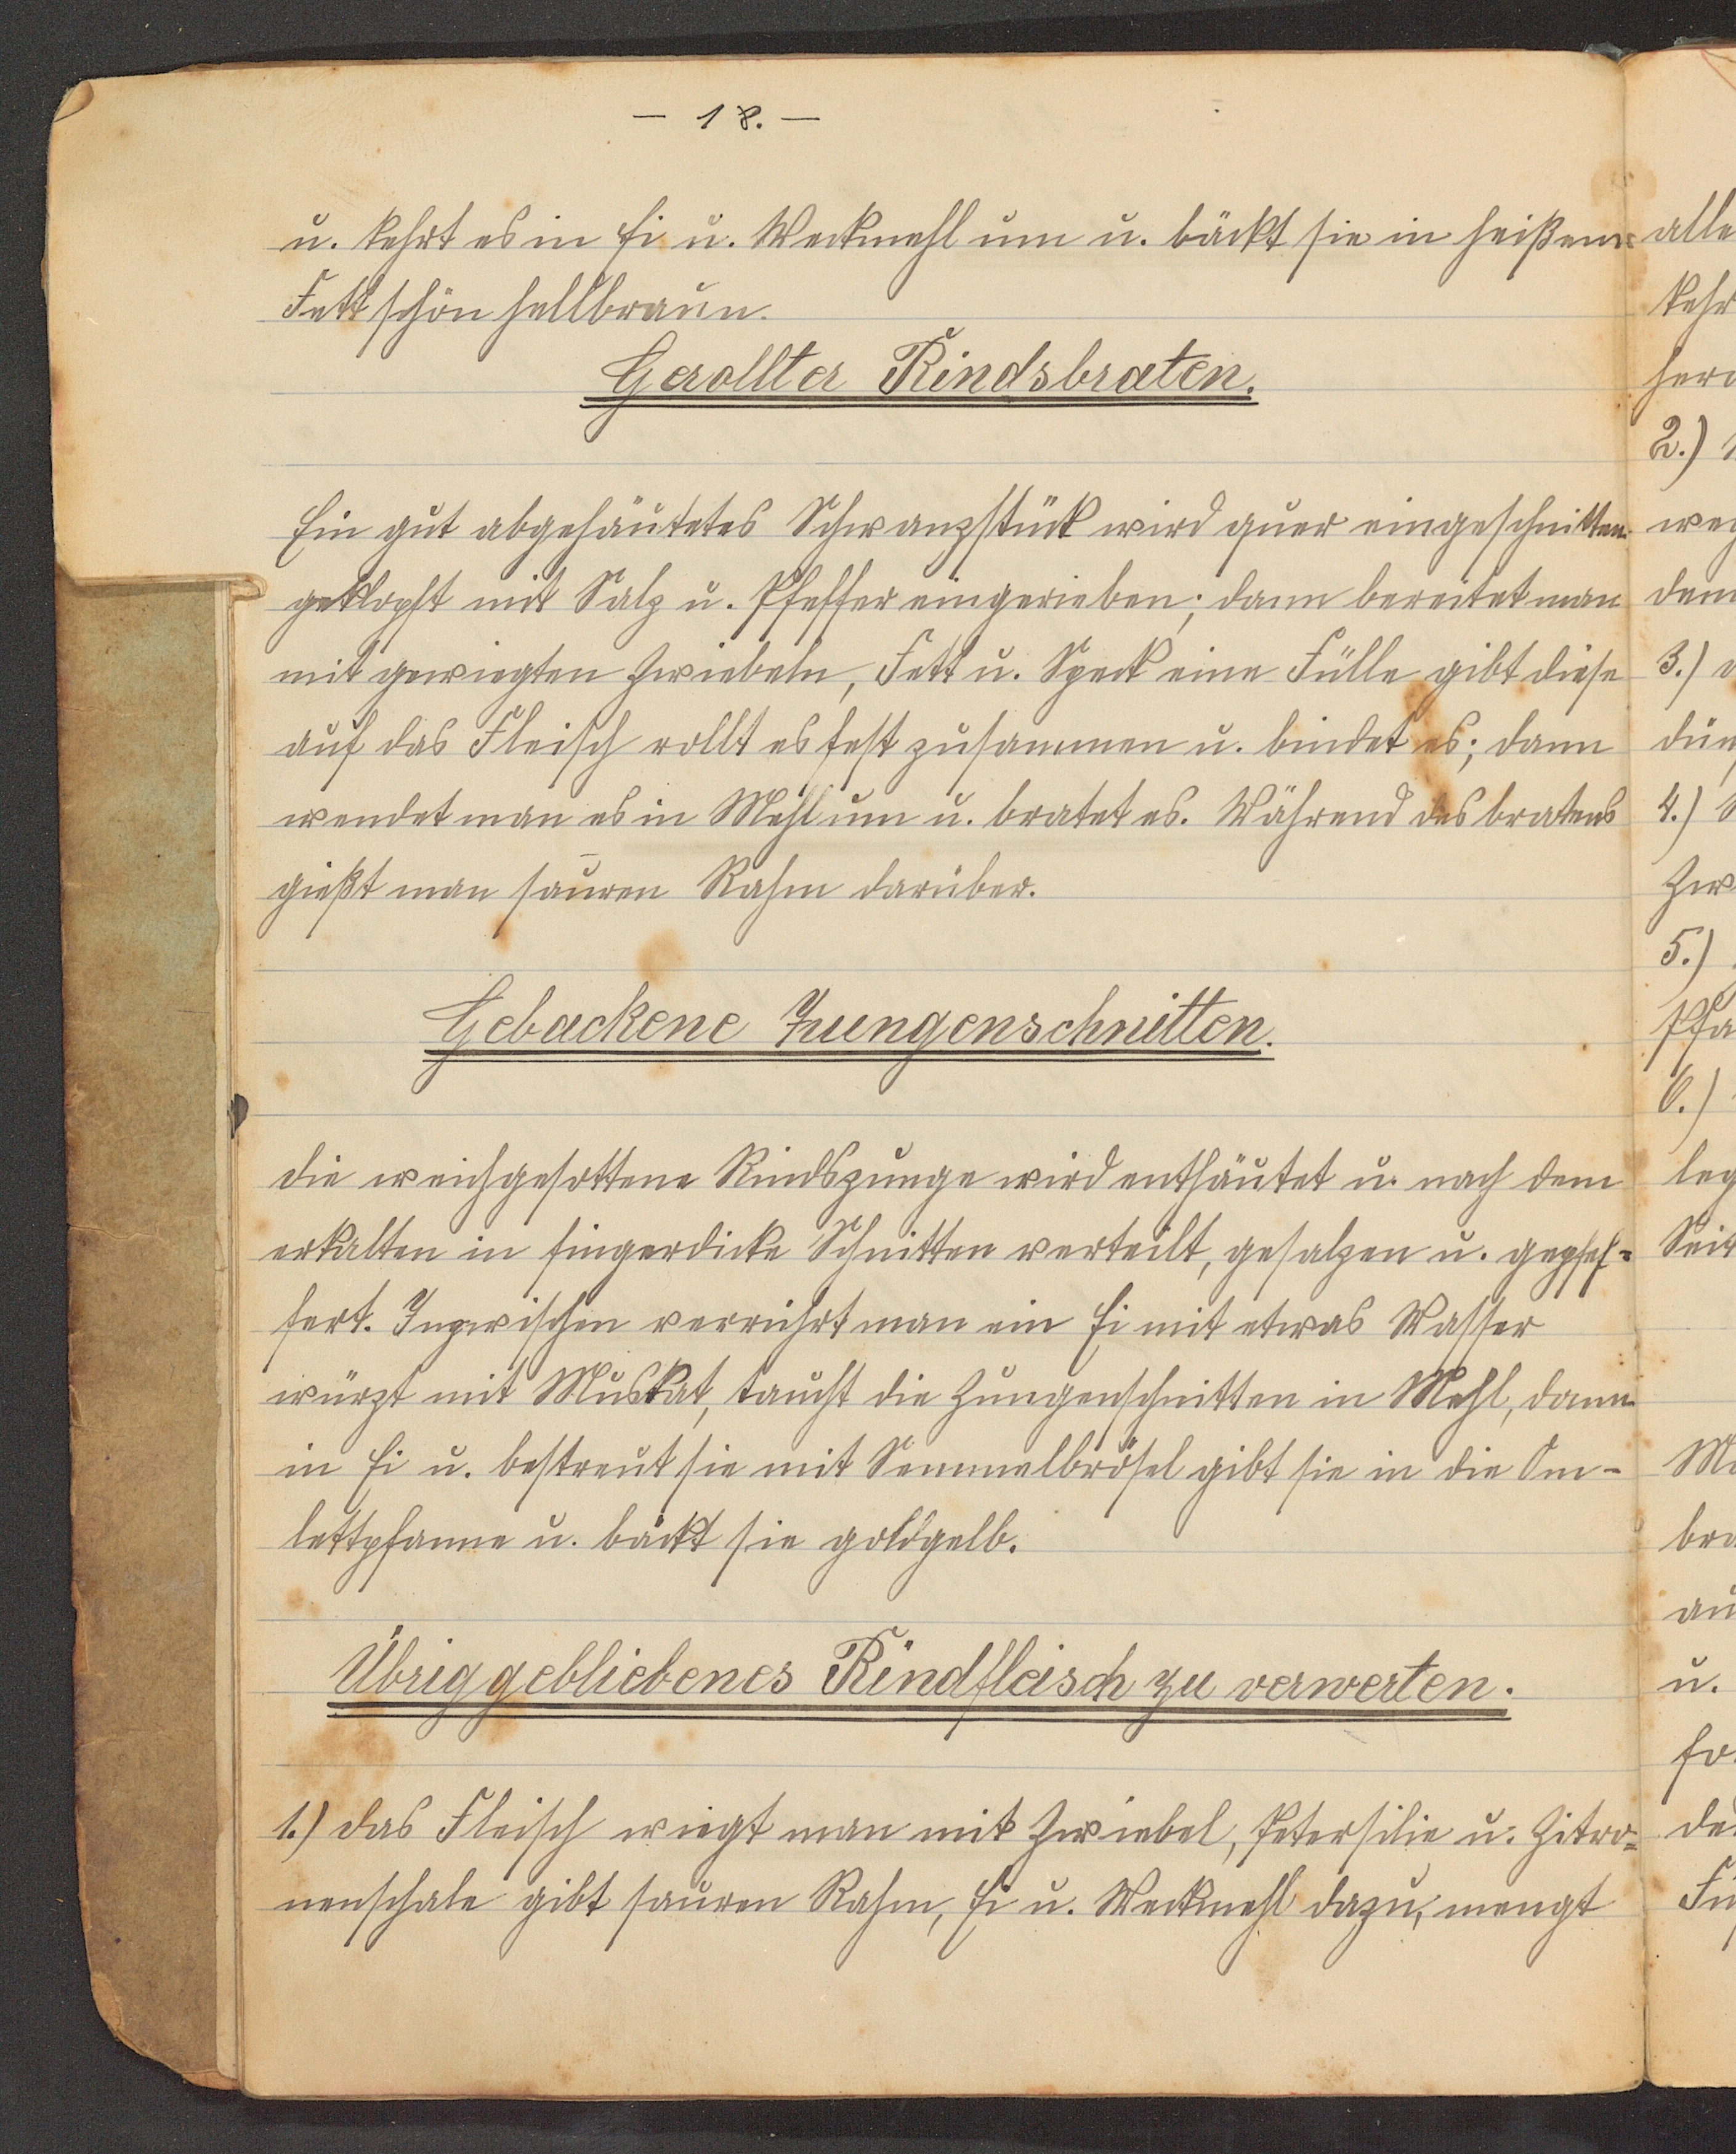 - 18. -
u. kehrt es in Ei u. Weckmehl um u. bäckt sie in heißem
Fett schön hellbraun.
Gerollter Rindsbraten.
Ein gut abgehäutetes Schwanzstück wird quer eingeschnitten
geklopft mit Salz u. Pfeffer eingerieben; dann bereitet man
mit gewiegten Zwiebeln, Fett u. Speck eine Fülle gibt diese
auf das Fleisch rollt es fest zusammen u. bindet es; dann
wendet man es in Mehl um u. bratet es. Während des bratens
gießt man sauren Rahm darüber.
Gebackene Zungenschnitten.
die weichgesottene Rindszunge wird enthäutet u. nach dem
erkalten in fingerdicke Schnitten verteilt, gesalzen u. gepfef=
fert. Inzwischen verrührt man ein Ei mit etwas Wasser
würzt mit Muskat, taucht die Zungenschnitten in Mehl, dann
in Ei u. bestreut sie mit Semmelbrösel gibt sie in die Om-
lettpfanne u. bäckt sie goldgelb.
Übriggebliebenes Rindfleisch zu verwerten.
1.) das Fleisch wiegt man mit Zwiebel, Petersilie u. Zitro=
nenschale gibt sauren Rahm, Ei u. Weckmehl dazu, mengt
alle
kehr
2.)
3.)
4.)
5.)
6.)
leg
Seit
u.